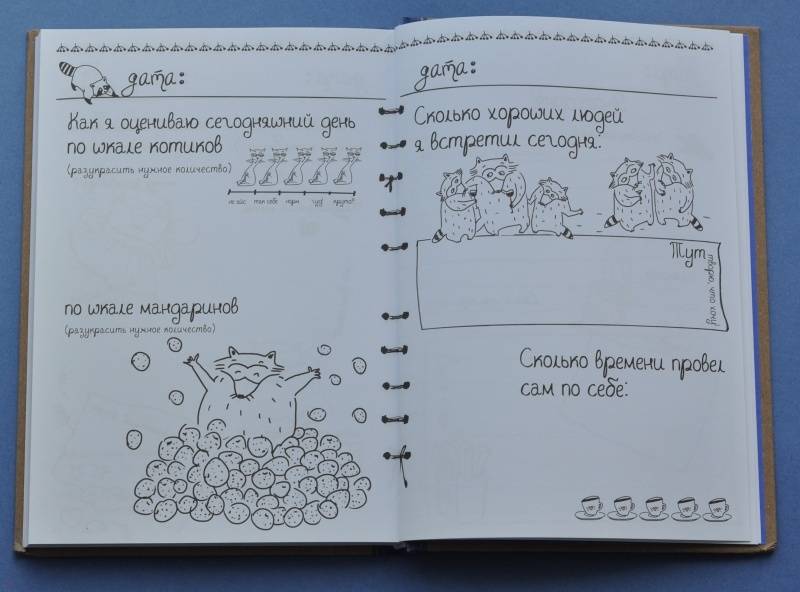 дата:
Как я оцениваю сегодняшний день
по шкале котиков
(разукрасить нужное количество)
не айс так себе норм чуд круто!!
по шкале мандаринов
(разукрасить нужное количество)
дата:
Сколько хороших людей
я встретил сегодня:
Тут
творю, что хочу!
Сколько времени провел
сам по себе: